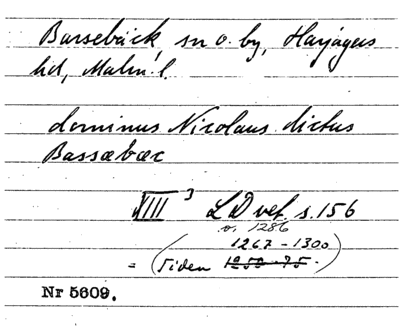 Barsebäck, sn o. by, Harjagers
hd, Malm. l.
dominus Nicolaus dictus
Bassæbæc
XIII 3 LD vet. s. 156
o. 1286
1267-1300
= (tiden 1250-75.)
Nr 5609.